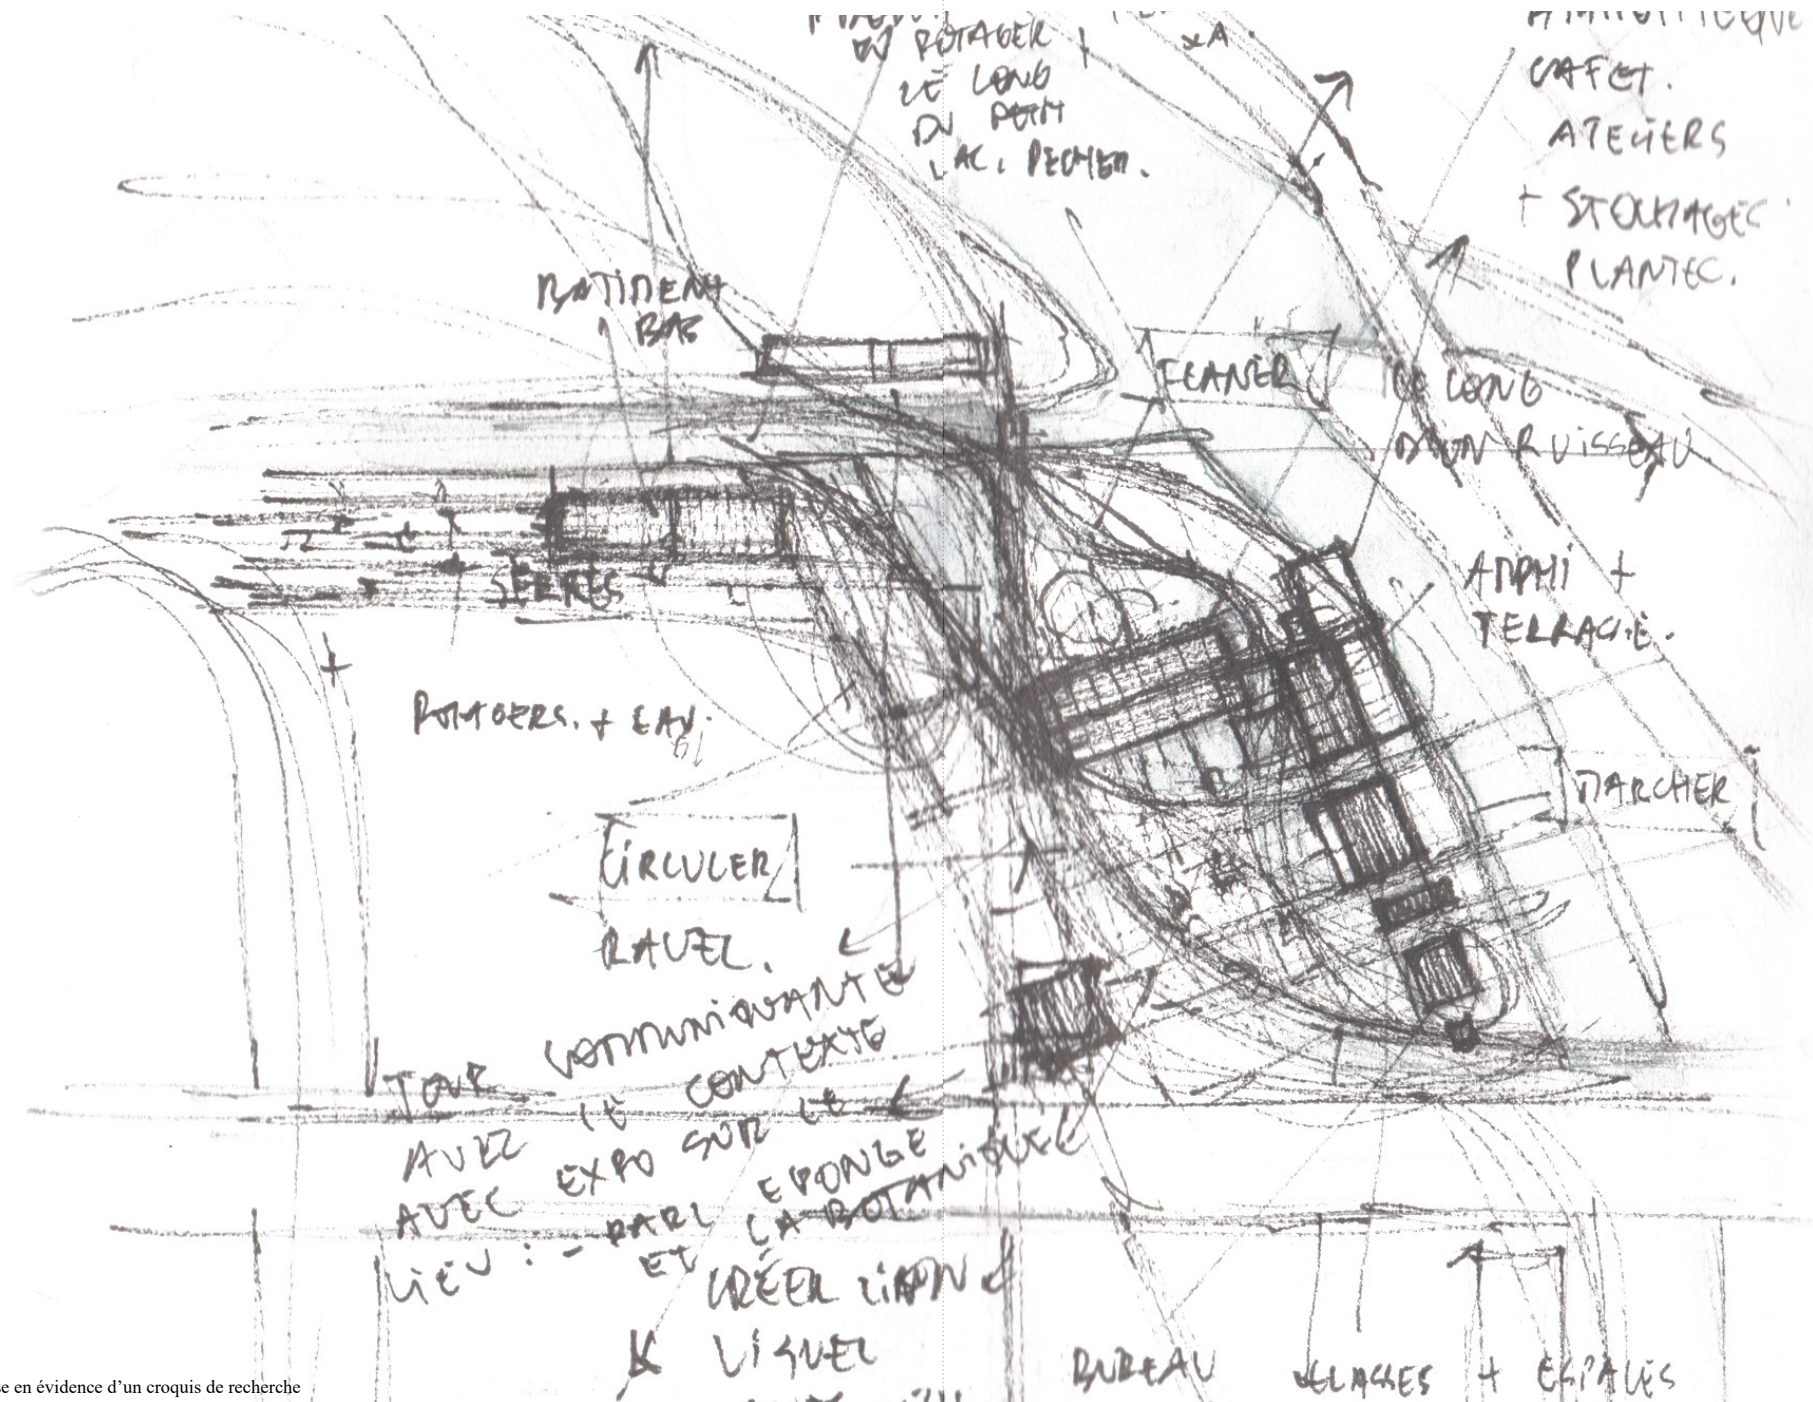 DU POTAGER
LE LONG
DU PETIT
LAC. PECHER.
CAFET.
ATELIERS
+ STOCKAGES
PLANTEC.
BATIMENT
BAS
FLANER
LE LONG
D'UN RUISSEAU.
SERRES
AMPHI +
TERRASSE.
POTAGERS. + EAU.
MARCHER
CIRCULER
RAVEL.
TOUR COMMUNIQUANTE
AVEC LE CONTEXTE
AVEC EXPO SUR LE
LIEU : - PARC EPONGE
ET LA BOTANIQUE
CRÉER LIAISON
VISUEL
BUREAU CLASSES + ESPACES
se en évidence d'un croquis de recherche